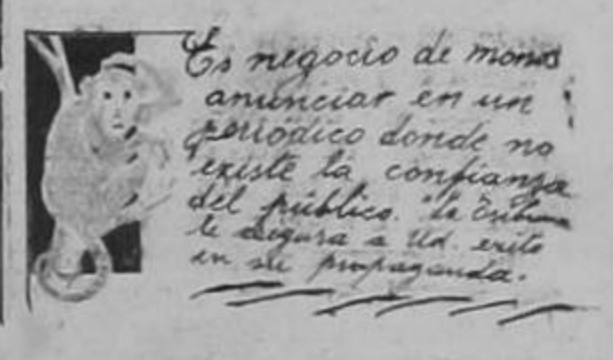 Es negocio de monos
anunciar en un
periódico donde no
existe la confianza
del público. "La Tribuna
le asegura a Ud. exito
en su propaganda.